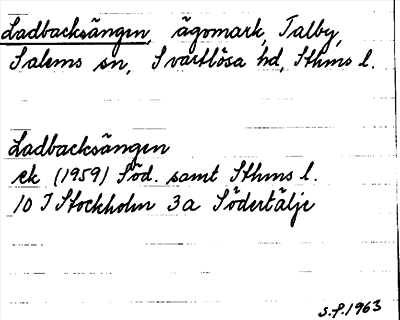 Ladbacksängen, ägomark, Talby,
Salems sn, Svartlösa hd, Sthms l.
Ladbacksängen
ek (1959) Söd. samt Sthms l.
10 I Stockholm 3a Södertälje
S.P. 1963